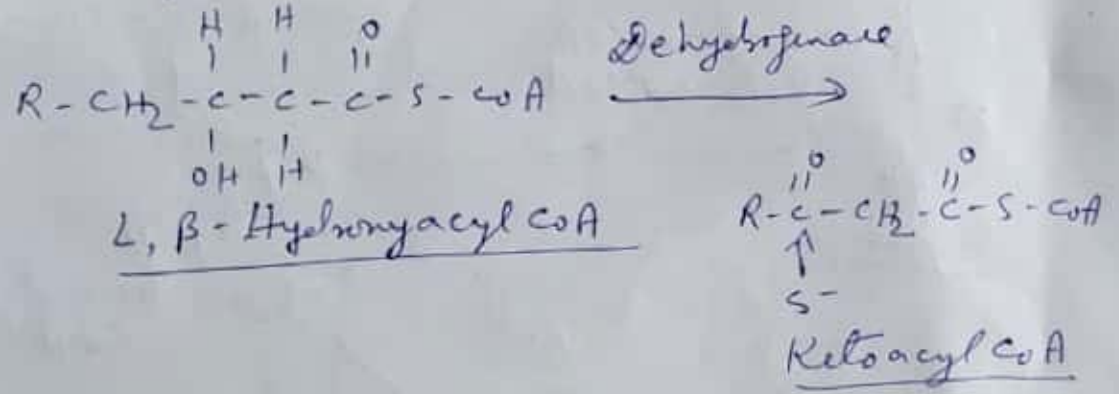 H H O
R - CH2 - C - C - C - S - CoA
OH H
Dehydrogenase
L, β - Hydroxyacyl CoA
O O
R - C - CH2 - C - S - CoA
S -
Ketoacyl CoA